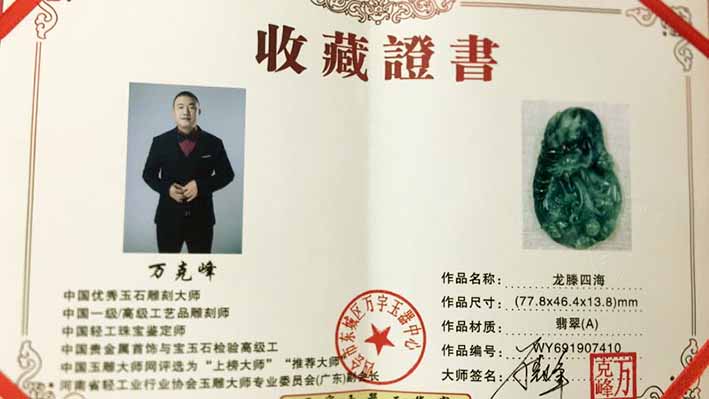 收藏證書
万克峰
中国优秀玉石雕刻大师
中国一级/高级工艺品雕刻师
中国轻工珠宝鉴定师
中国贵金属首饰与宝玉石检验高级工
中国玉雕大师网评选为“上榜大师”“推荐大师”
河南省轻工业行业协会玉雕大师专业委员会(广东)副会长
市东城区万宇玉器中心
作品名称： 龙滕四海
作品尺寸： (77.8x46.4x13.8)mm
作品材质： 翡翠(A)
作品编号： WY691907410
大师签名：
万克峰